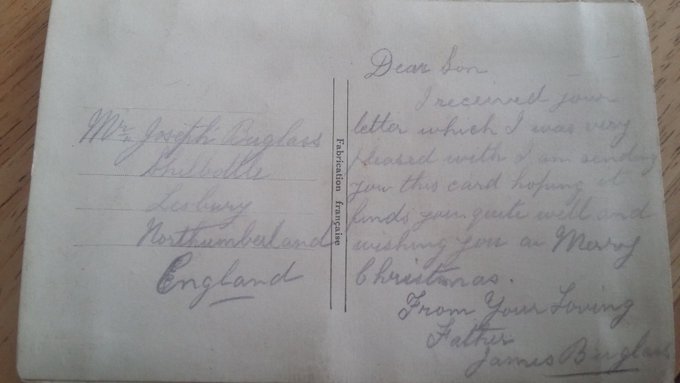 Mr. Joseph Buglass
Shilbottle
Lesbury
Northumberland
England
Fabrication française
Dear Son
I received your
letter which I was very
pleased with I am sending
you this card hoping it
finds you quite well and
wishing you a Merry
Christmas.
From Your Loving
Father
James Buglass